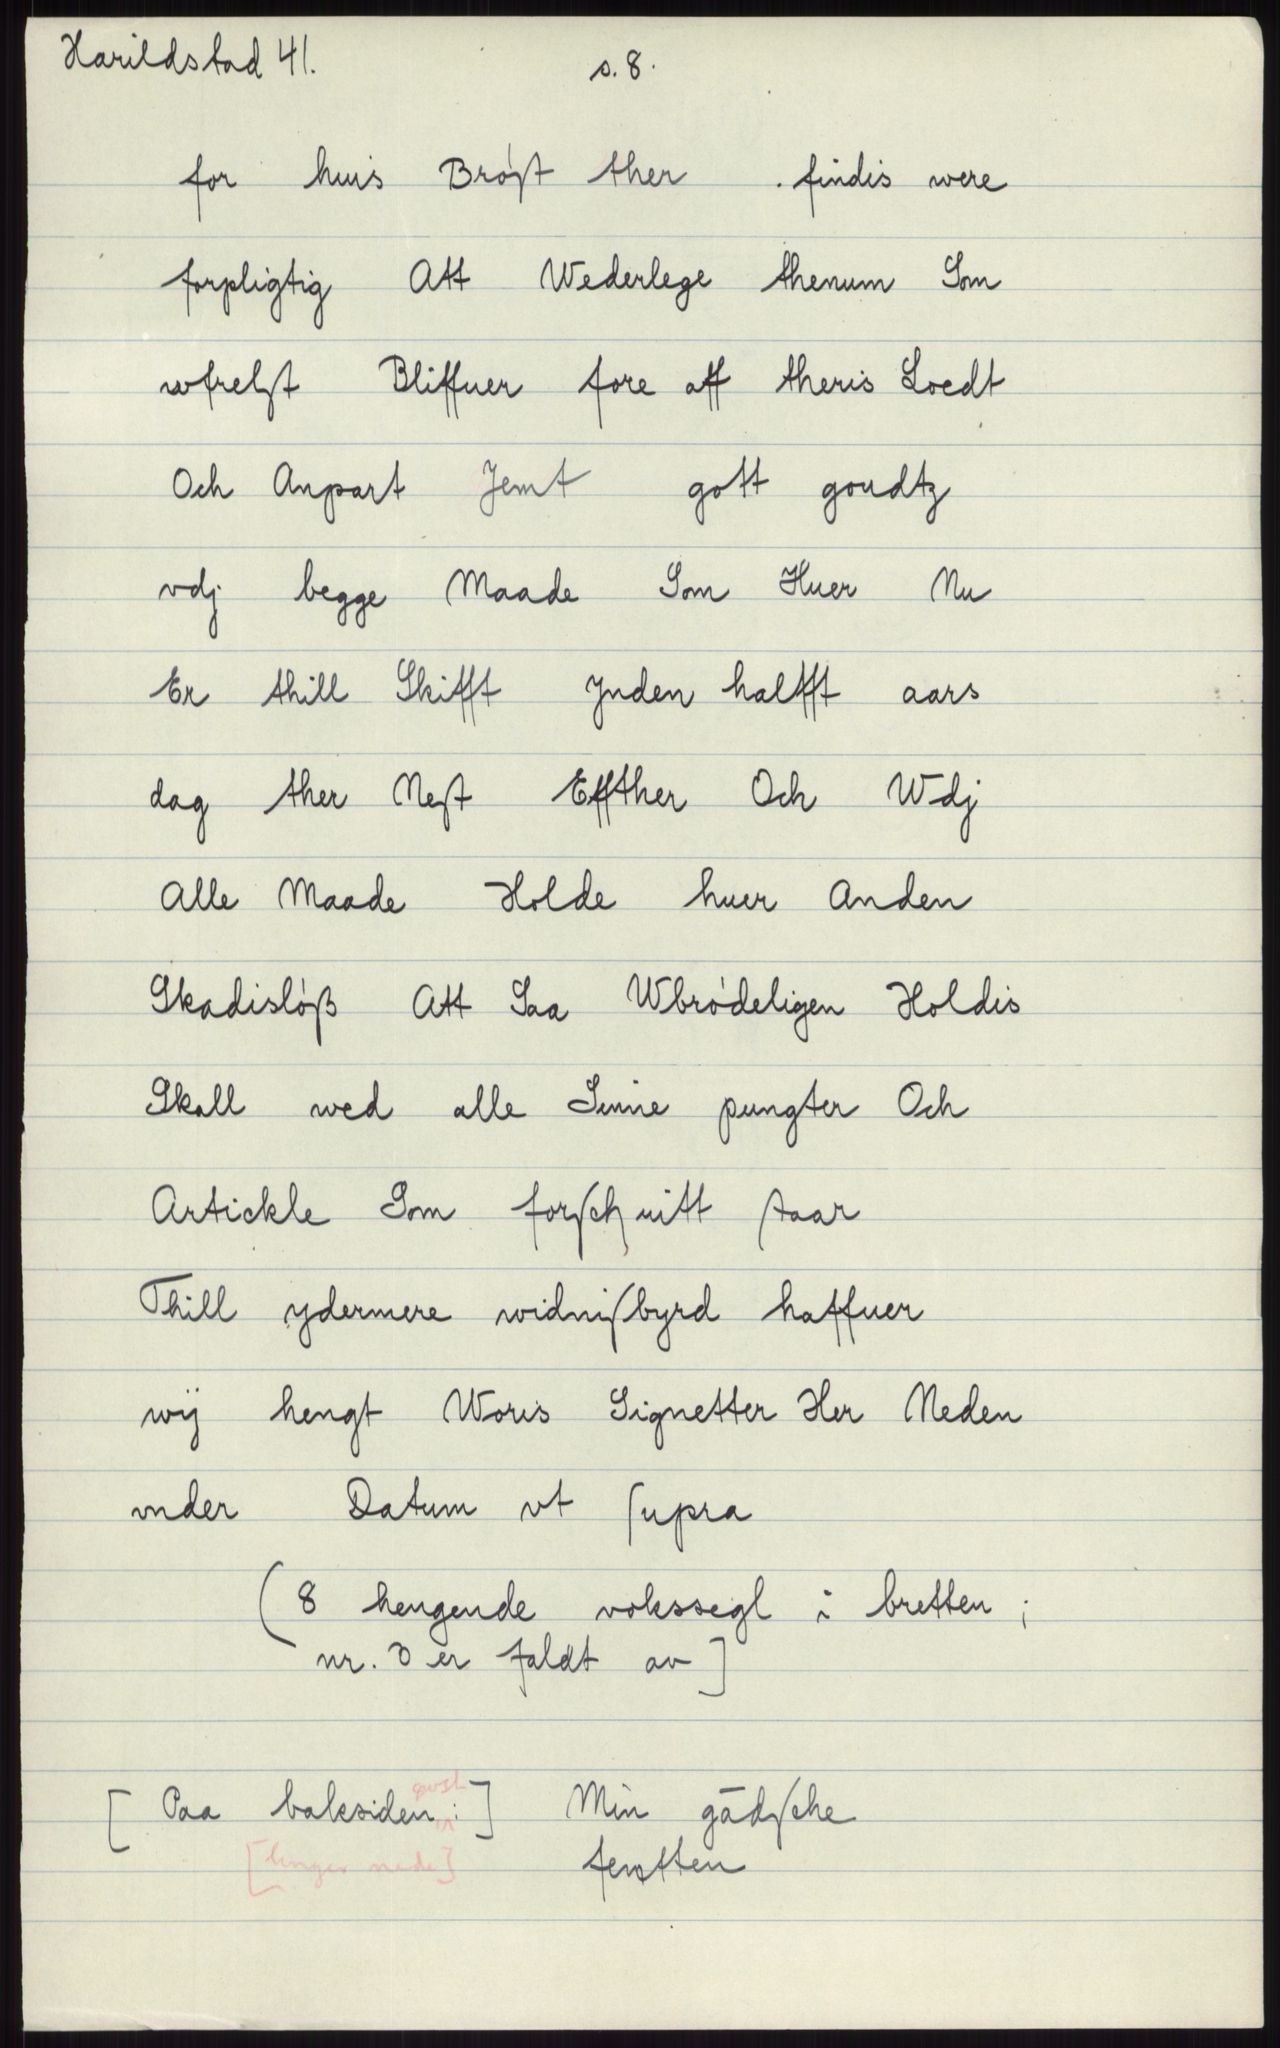 Harildstad 41. s. 8.
for huis Brøst ther . findis were
forpligtig Att Wederlege thenum Som
wfrelst Bliffuer fore aff theris Loedt
Och Anpart Jemt gott goudtz
vdj begge Maade Som Huer Nu
Er thill Skifft Jnden halfft aars
dag ther Nest Effther Och Wdj
Alle Maade Holde huer Anden
Skadisløß Att Saa Wbrødeligen Holdis
Skall wed alle Sinne pungter Och
Artickle Som forschuitt staar
Thill ydermere widnisbyrd haffuer
wij hengt Woris Signetter Her Neden
vnder Datum vt supra
(8 hengende vokssegl i bretten;
nr. 3 er faldt av]
[Paa baksiden øvst:] Min gādsche
[lenger nede] ferstten